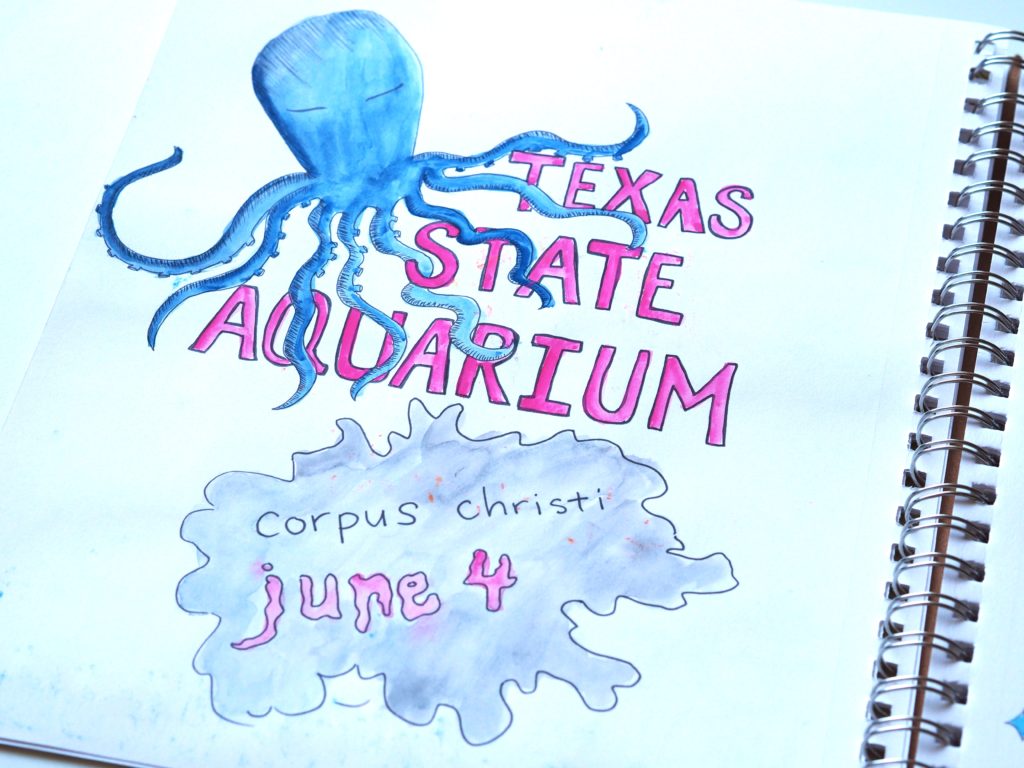 TEXAS
STATE
AQUARIUM
corpus christi
june 4